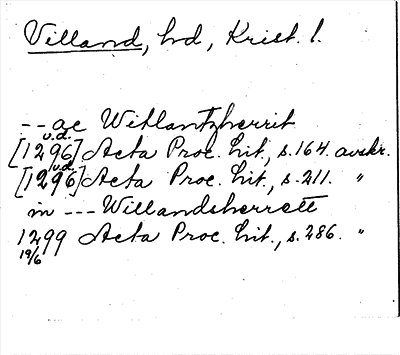 Villand, hd, Krist. l.
-- ac Witlantzherrit
[1296] u.d. Acta Proc. hit., s. 164. avskr.
[1296] u.d. Acta Proc. hit., s. 211. "
in --- Willandsherrett
1299 Acta Proc. hit., s. 286. "
19/6